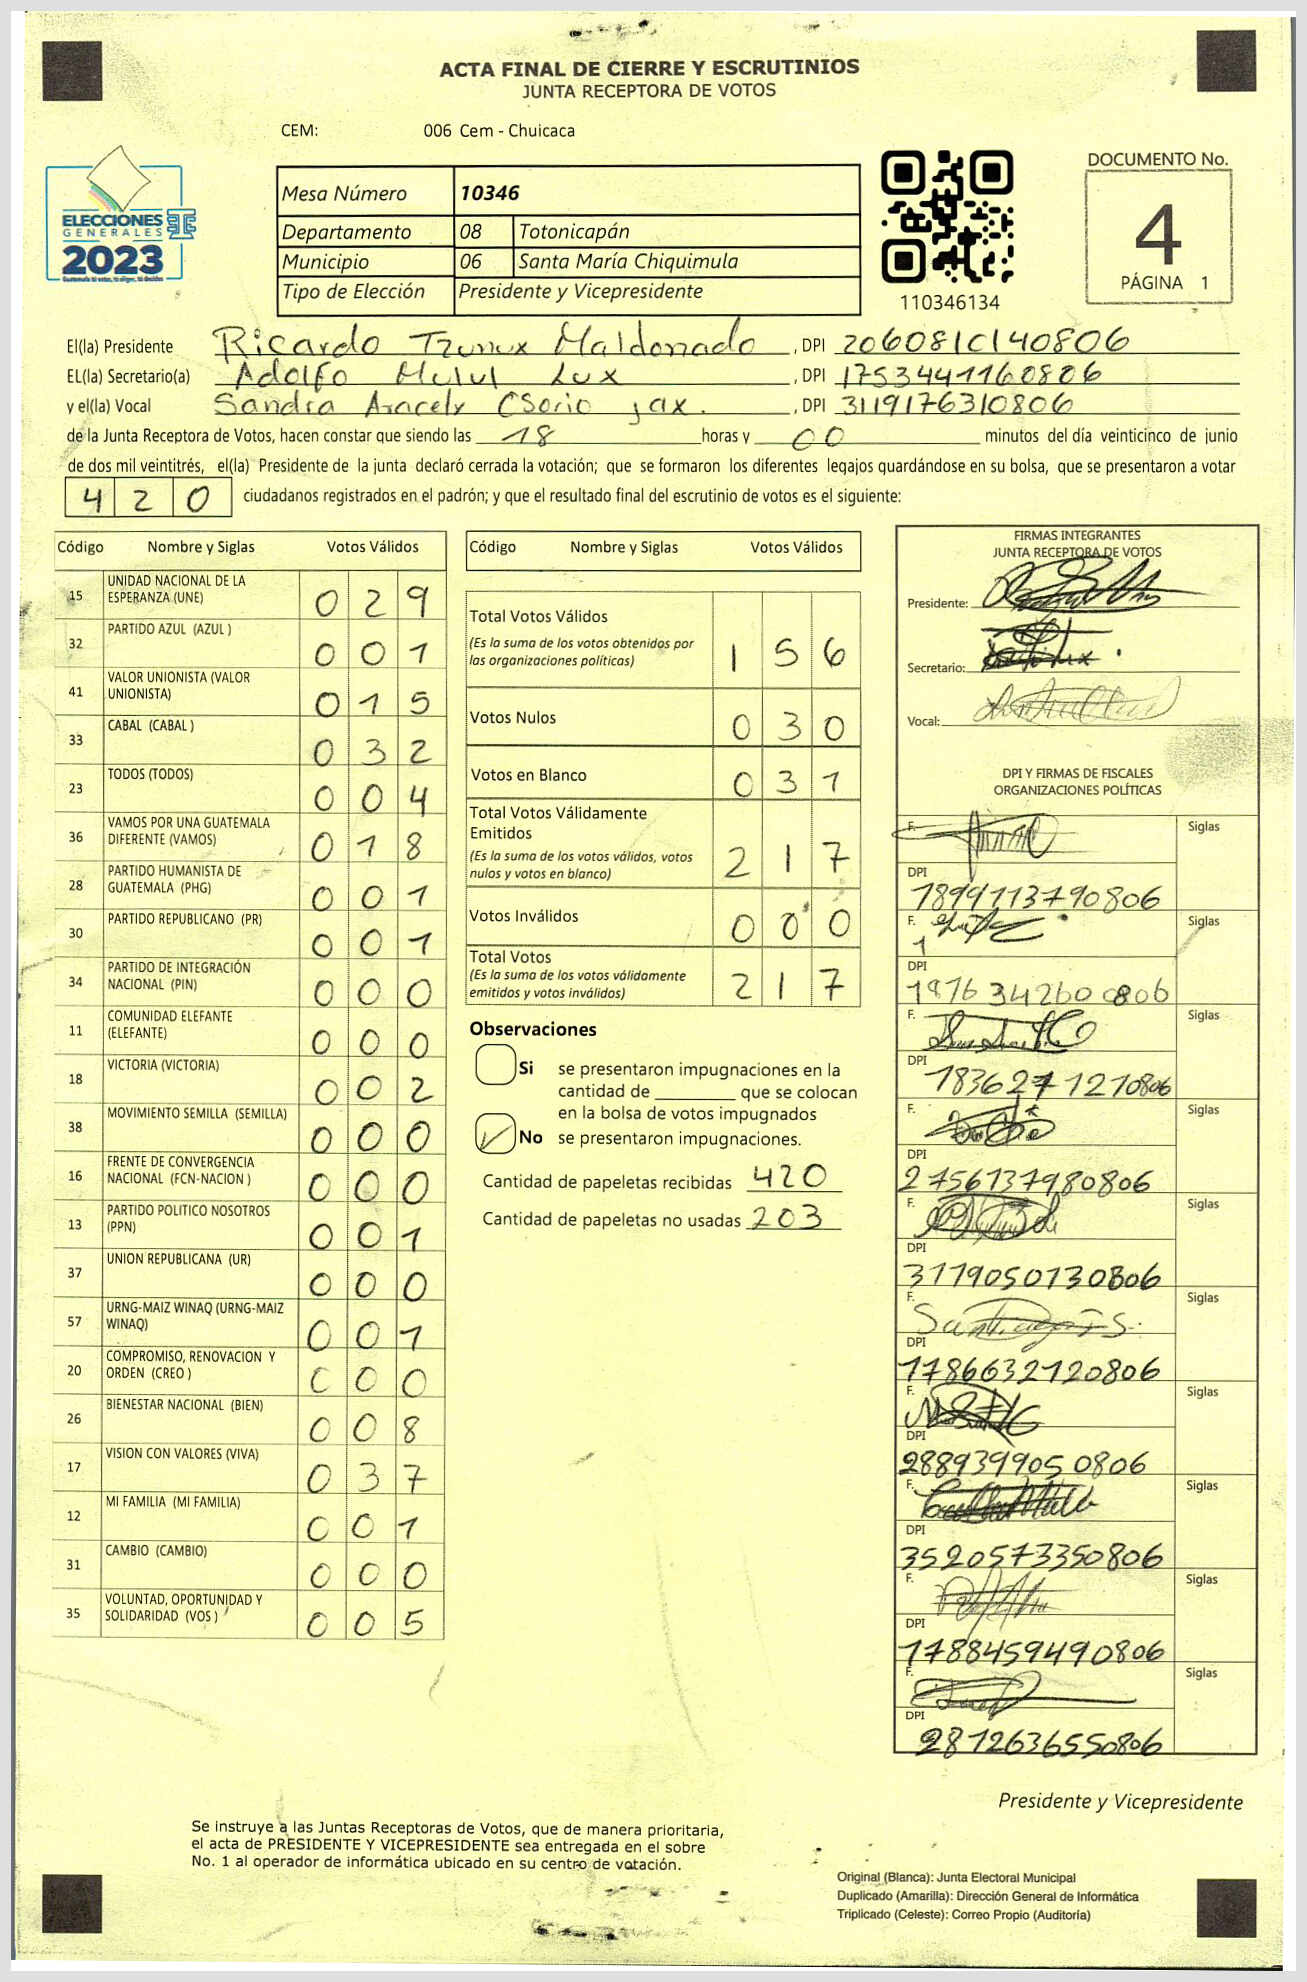 ACTA FINAL DE CIERRE Y ESCRUTINIOS
JUNTA RECEPTORA DE VOTOS
CEM: 006 Cem - Chuicaca
ELECCIONES
GENERALES
2023
Mesa Número 10346
Departamento 08 Totonicapán
Municipio 06 Santa María Chiquimula
Tipo de Elección Presidente y Vicepresidente
110346134
DOCUMENTO No.
4
PÁGINA 1
El(la) Presidente Ricardo Tzunux Maldonado, DPI 206081C140806
EL(la) Secretario(a) Adolfo Mulul Lux, DPI 1753441160806
y el(la) Vocal Sandra Aracely Osorio jax., DPI 3119176310806
de la Junta Receptora de Votos, hacen constar que siendo las 18 horas y 00 minutos del día veinticinco de junio
de dos mil veintitrés, el(la) Presidente de la junta declaró cerrada la votación; que se formaron los diferentes legajos guardándose en su bolsa, que se presentaron a votar
420 ciudadanos registrados en el padrón; y que el resultado final del escrutinio de votos es el siguiente:
Código Nombre y Siglas Votos Válidos
15 UNIDAD NACIONAL DE LA ESPERANZA (UNE) 029
32 PARTIDO AZUL (AZUL ) 001
41 VALOR UNIONISTA (VALOR UNIONISTA) 015
33 CABAL (CABAL ) 032
23 TODOS (TODOS) 004
36 VAMOS POR UNA GUATEMALA DIFERENTE (VAMOS) 018
28 PARTIDO HUMANISTA DE GUATEMALA (PHG) 001
30 PARTIDO REPUBLICANO (PR) 001
34 PARTIDO DE INTEGRACIÓN NACIONAL (PIN) 000
11 COMUNIDAD ELEFANTE (ELEFANTE) 000
18 VICTORIA (VICTORIA) 002
38 MOVIMIENTO SEMILLA (SEMILLA) 000
16 FRENTE DE CONVERGENCIA NACIONAL (FCN-NACION ) 000
13 PARTIDO POLITICO NOSOTROS (PPN) 001
37 UNION REPUBLICANA (UR) 000
57 URNG-MAIZ WINAQ (URNG-MAIZ WINAQ) 001
20 COMPROMISO, RENOVACION Y ORDEN (CREO ) 000
26 BIENESTAR NACIONAL (BIEN) 008
17 VISION CON VALORES (VIVA) 037
12 MI FAMILIA (MI FAMILIA) 001
31 CAMBIO (CAMBIO) 000
35 VOLUNTAD, OPORTUNIDAD Y SOLIDARIDAD (VOS ) 005
Código Nombre y Siglas Votos Válidos
Total Votos Válidos
(Es la suma de los votos obtenidos por las organizaciones políticas) 156
Votos Nulos 030
Votos en Blanco 031
Total Votos Válidamente Emitidos
(Es la suma de los votos válidos, votos nulos y votos en blanco) 217
Votos Inválidos 000
Total Votos
(Es la suma de los votos válidamente emitidos y votos inválidos) 217
Observaciones
Si se presentaron impugnaciones en la
cantidad de ________ que se colocan
en la bolsa de votos impugnados
No se presentaron impugnaciones.
Cantidad de papeletas recibidas 420
Cantidad de papeletas no usadas 203
FIRMAS INTEGRANTES
JUNTA RECEPTORA DE VOTOS
Presidente:
Secretario:
Vocal:
DPI Y FIRMAS DE FISCALES
ORGANIZACIONES POLÍTICAS
F. Siglas
DPI
1899113790806
F. Siglas
DPI
1976342600806
F. Siglas
DPI
1836271210806
F. Siglas
DPI
2756137980806
F. Siglas
DPI
3119050130806
F. Siglas
DPI
1786632120806
F. Siglas
DPI
2889399050806
F. Siglas
DPI
3520573350806
F. Siglas
DPI
1788459490806
F. Siglas
DPI
2812636550806
Presidente y Vicepresidente
Se instruye a las Juntas Receptoras de Votos, que de manera prioritaria,
el acta de PRESIDENTE Y VICEPRESIDENTE sea entregada en el sobre
No. 1 al operador de informática ubicado en su centro de votación.
Original (Blanca): Junta Electoral Municipal
Duplicado (Amarilla): Dirección General de Informática
Triplicado (Celeste): Correo Propio (Auditoría)